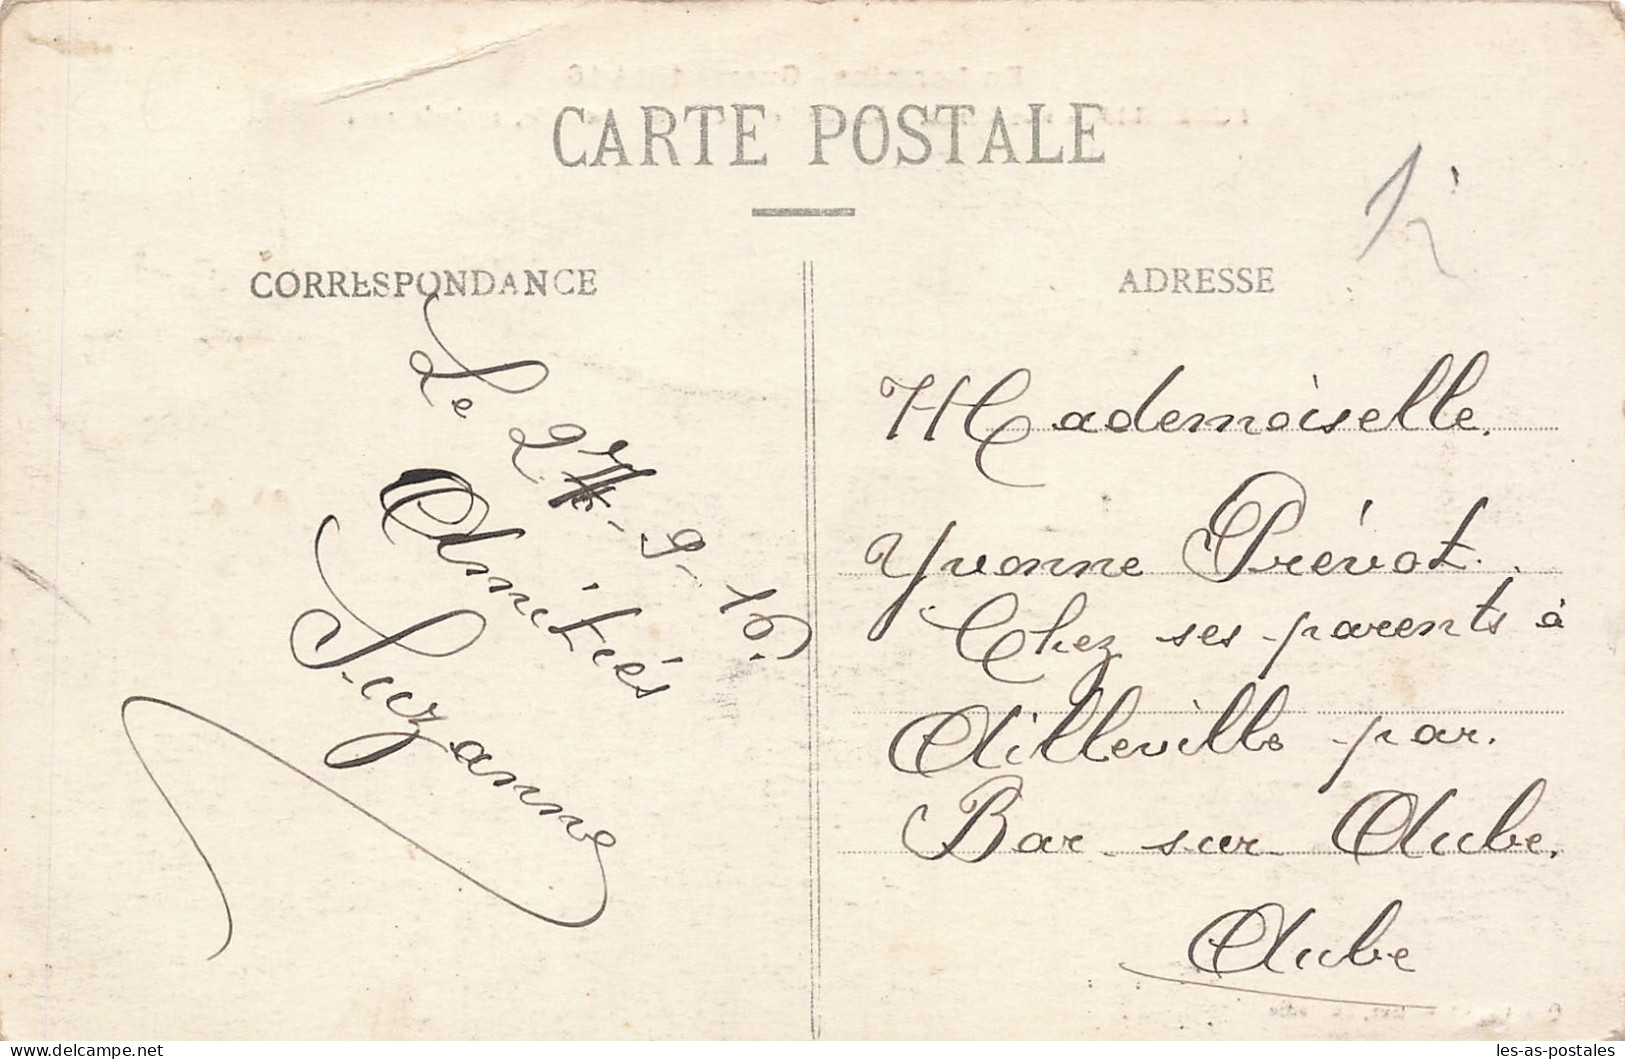 CARTE POSTALE
CORRESPONDANCE
ADRESSE
Le 27-9-16.
Amitiés
Suzanne
Mademoiselle.
Yvonne Prévot.
Chez ses parents à
Ailleville par.
Bar-sur-Aube.
Aube
delcampe.net
les-as-postales